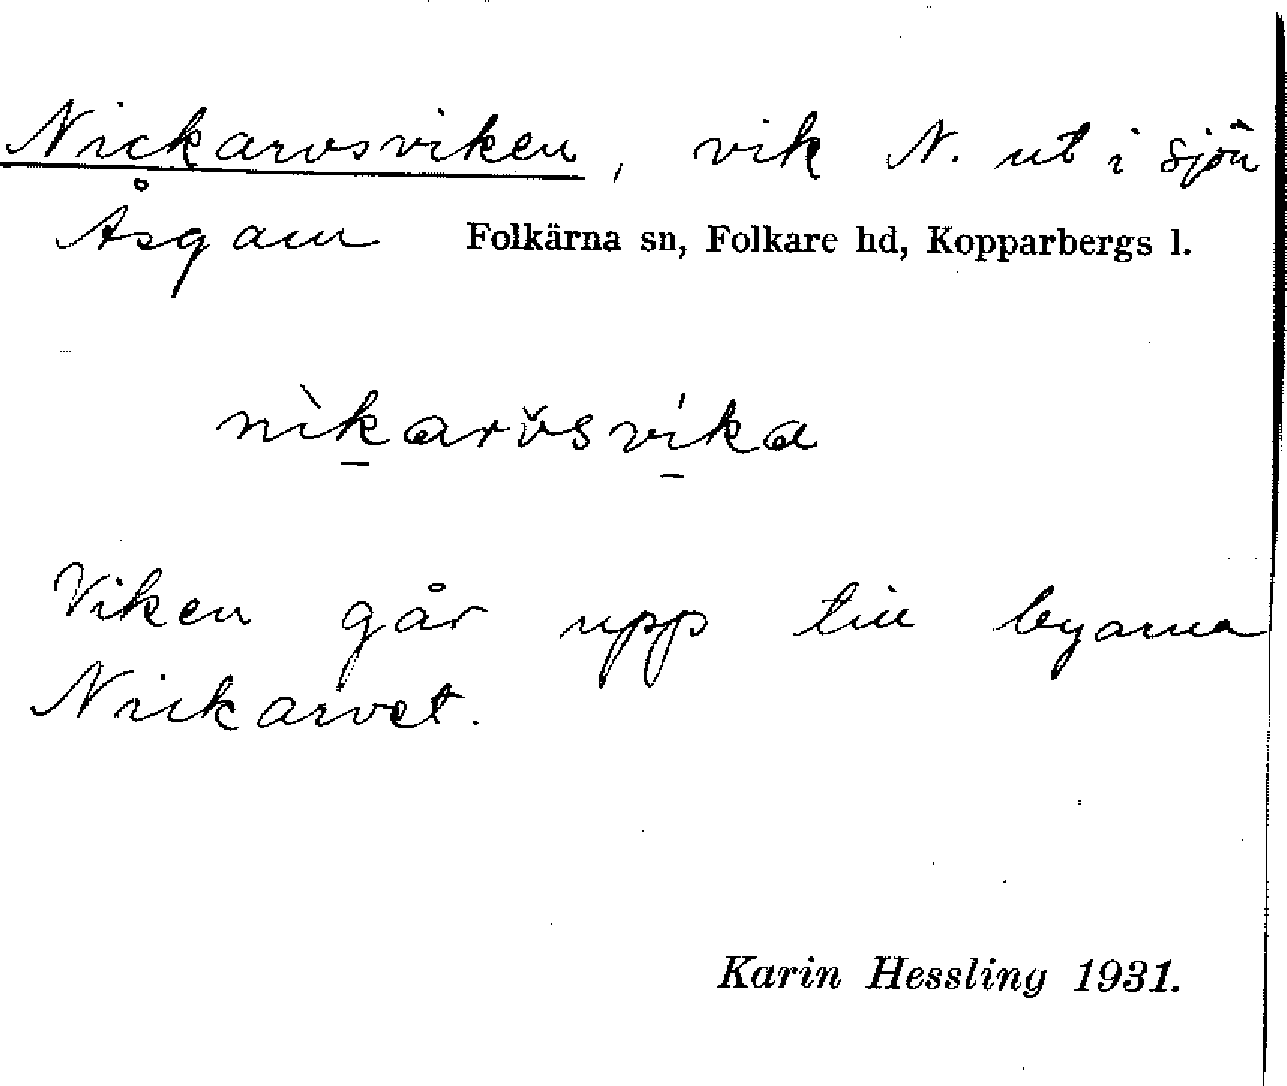 Nickarvsviken, vik N. ut i sjön
Åsgarn Folkärna sn, Folkare hd, Kopparbergs l.
nìkarv̆svíka
Viken går upp till byarna
Nickarvet.
Karin Hessling 1931.